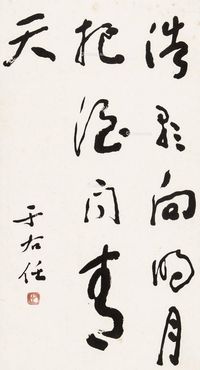 浩歌向明月
把酒問青
天
于右任